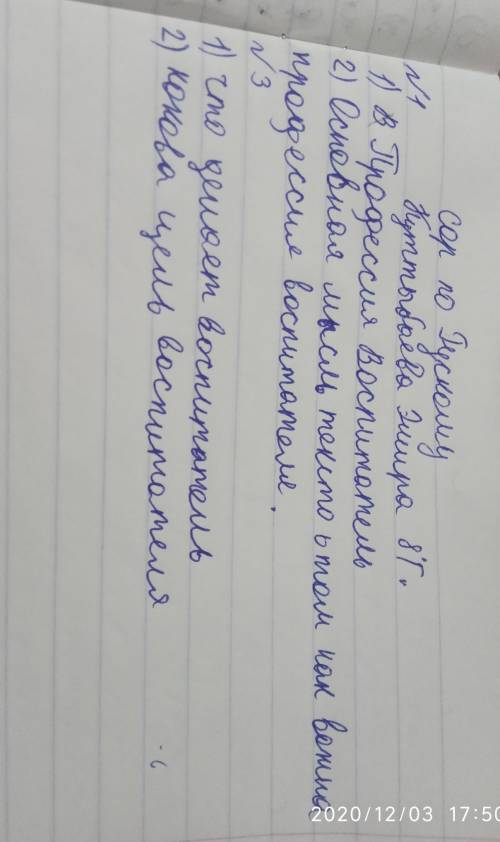 Сор по Рускому
Куттыбаева Эмира 8"Г".
№1
1) В Профессия Воспитатель
2) Основная мысль текста о том как важна
профессия воспитателя.
№3
1) что делает воспитатель
2) какова цель воспитателя
2020/12/03 17:50